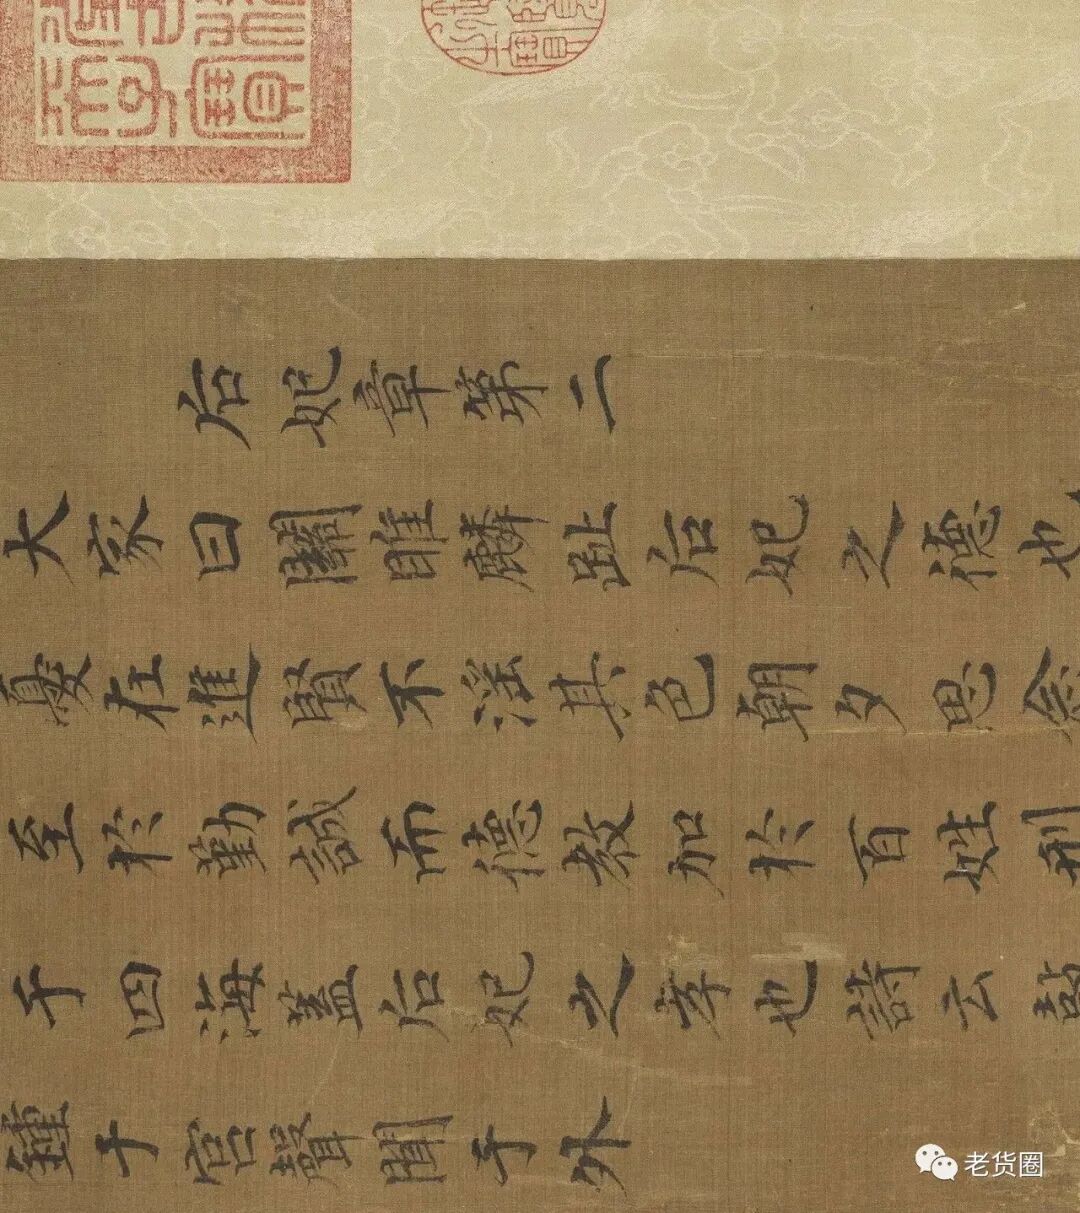 后妃章第二
大家曰關雎麟趾后妃之德也
憂在進賢不淫其色朝夕思念
至於勤誠而德教加於百姓刑
于四海蓋后妃之孝也詩云鼓
鐘于宮聲聞于外
老货圈